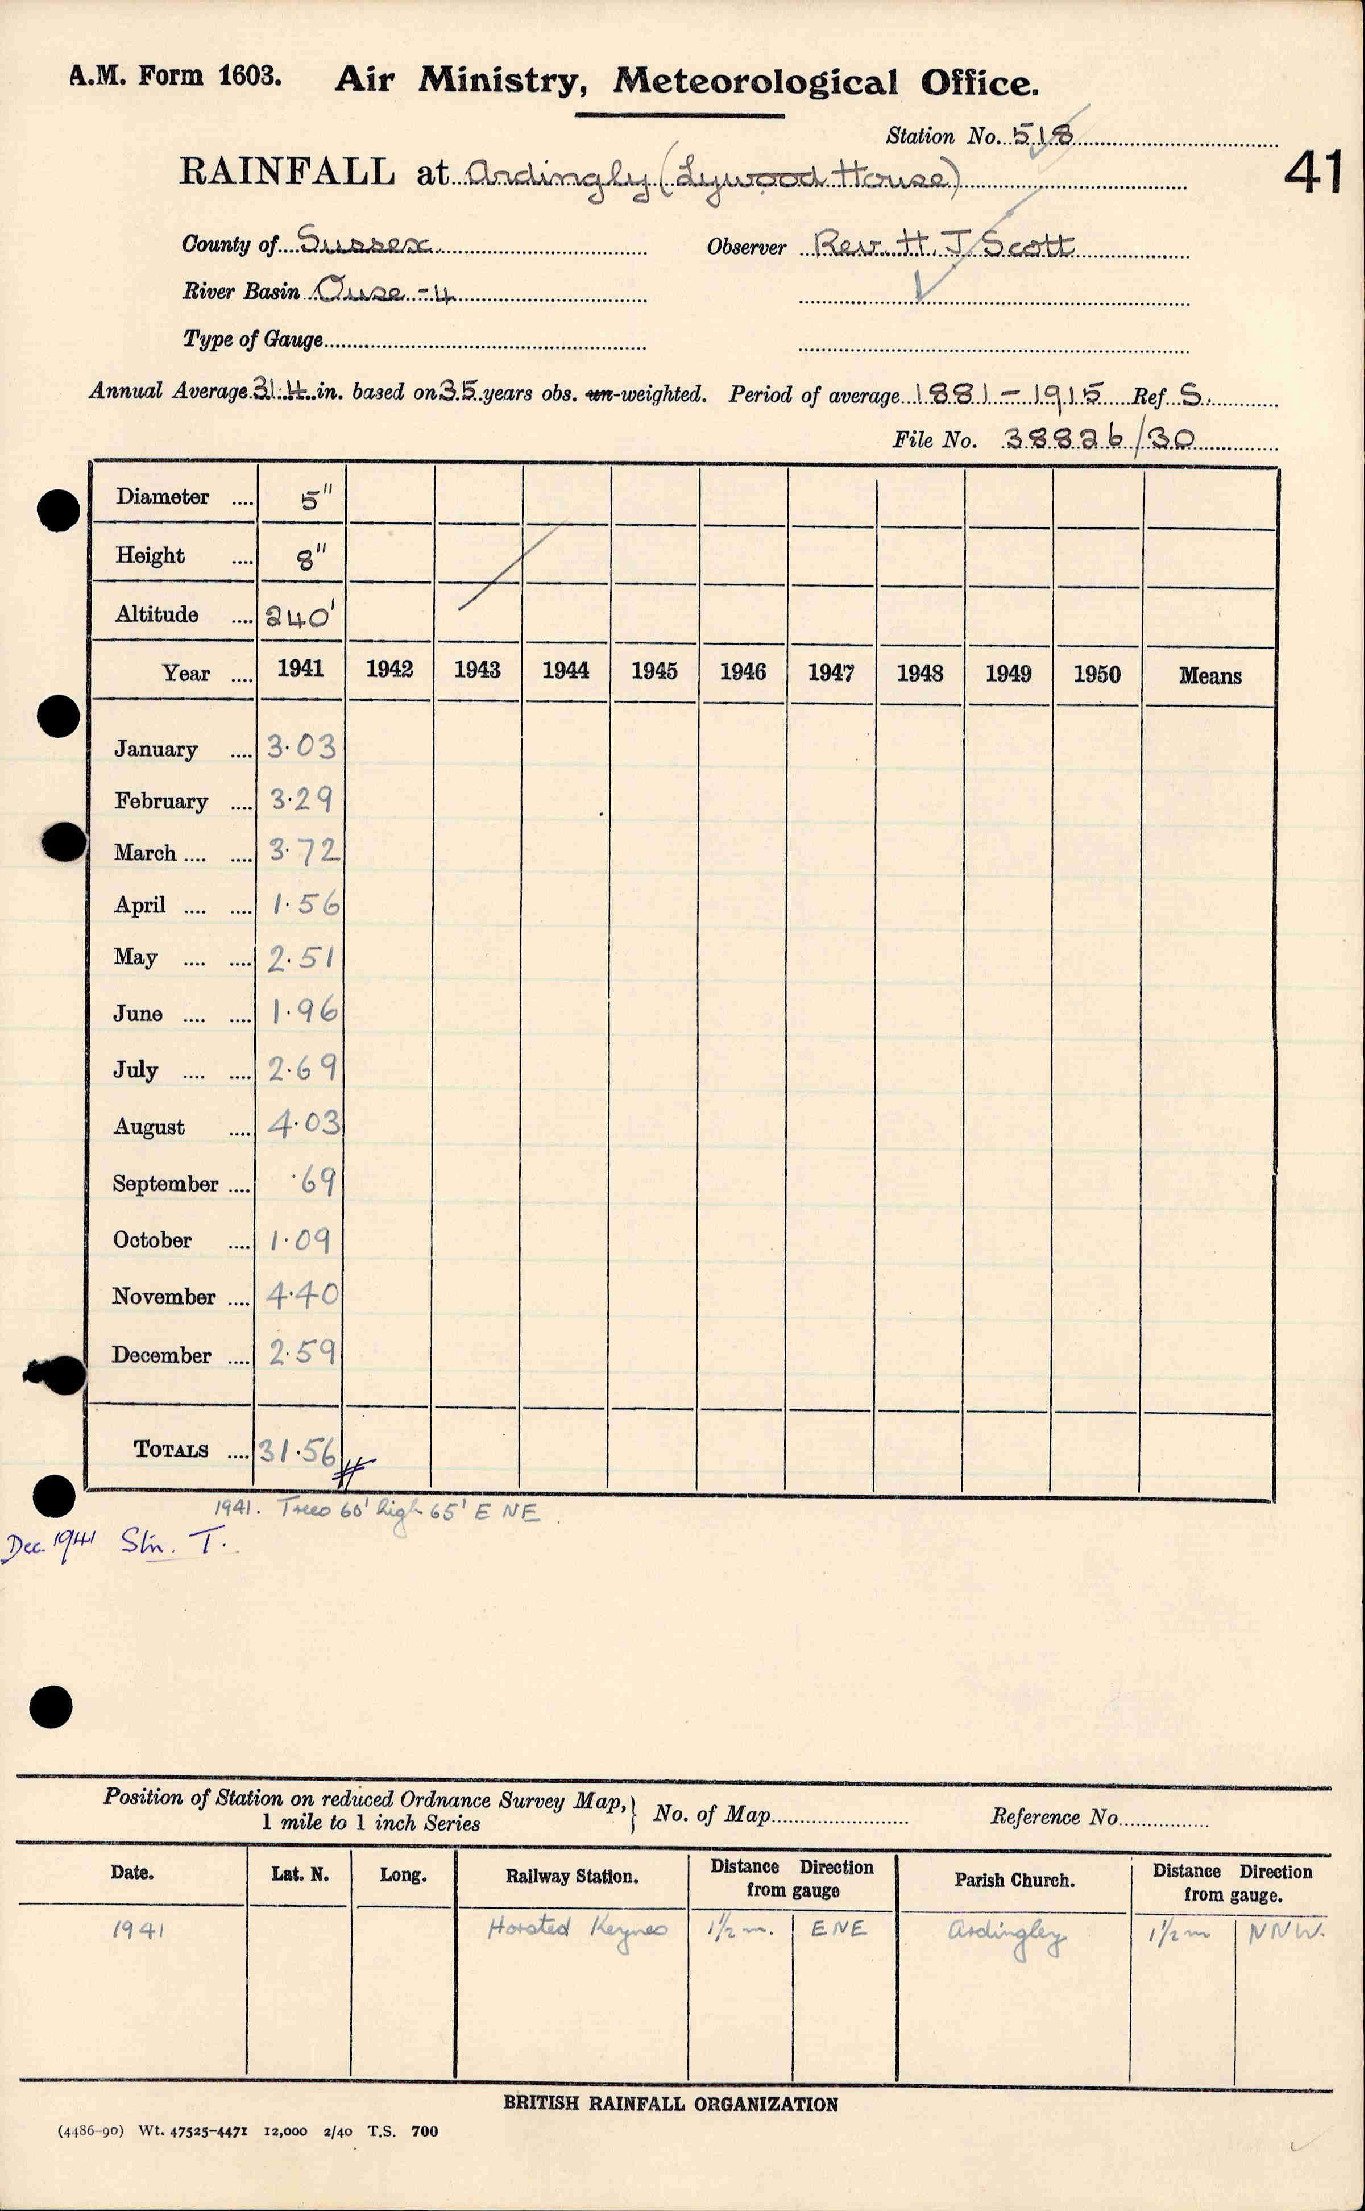 A.M. Form 1603. Air Ministry, Meteorological Office.
Station No. 518
41
RAINFALL at Ardingly (Lywood House)
County of Sussex Observer Rev. H. J. Scott
River Basin Ouse -4
Type of Gauge
Annual Average 31.4 in. based on 35 years obs. un-weighted. Period of average 1881 - 1915 Ref S.
File No. 38826/30
Diameter .... 5"
Height .... 8"
Altitude .... 240'
Year .... 1941 1942 1943 1944 1945 1946 1947 1948 1949 1950 Means
January .... 3.03
February .... 3.29
March .... .... 3.72
April .... .... 1.56
May .... .... 2.51
June .... .... 1.96
July .... .... 2.69
August .... 4.03
September .... .69
October .... 1.09
November .... 4.40
December .... 2.59
TOTALS .... 31.56
1941. Trees 60' high 65' E NE
Dec 1941 Stn. T.
Position of Station on reduced Ordnance Survey Map, } No. of Map Reference No
1 mile to 1 inch Series
Date. Lat. N. Long. Railway Station. Distance Direction from gauge Parish Church. Distance Direction from gauge.
1941 Horsted Keynes 1½ m. ENE Ardingley 1½ m NNW.
BRITISH RAINFALL ORGANIZATION
(4486-90) Wt. 47525-4471 12,000 2/40 T.S. 700